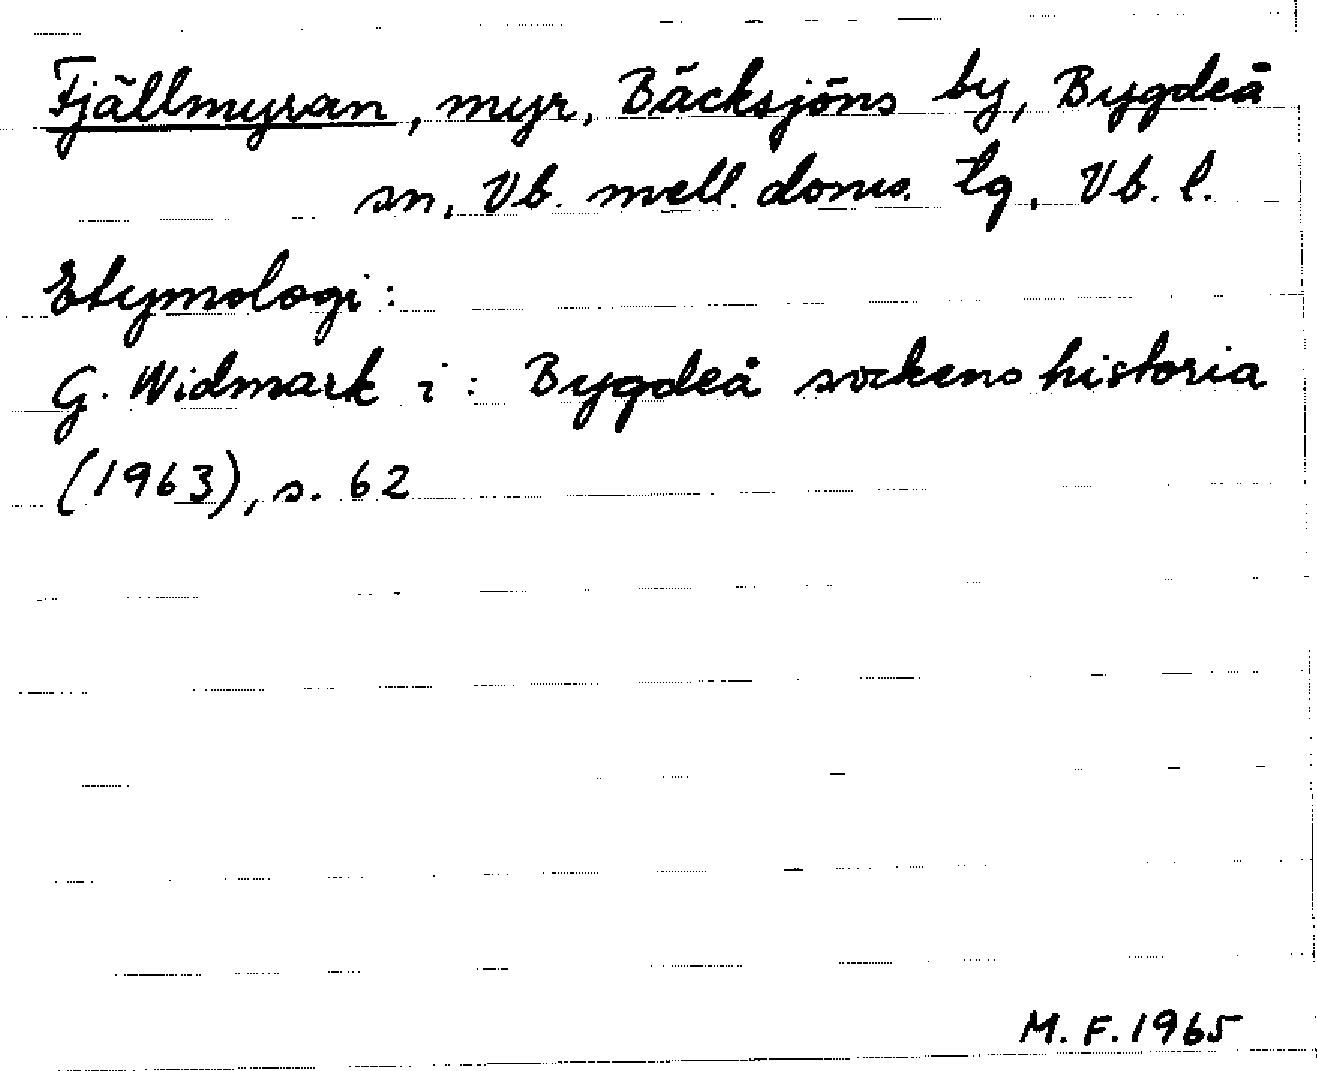 Fjällmyran, myr, Bäcksjöns by, Bygdeå
sn, Vb. mell. doms. tg, Vb. l.
Etymologi:
G. Widmark i: Bygdeå sockens historia
(1963), s. 62
M. F. 1965